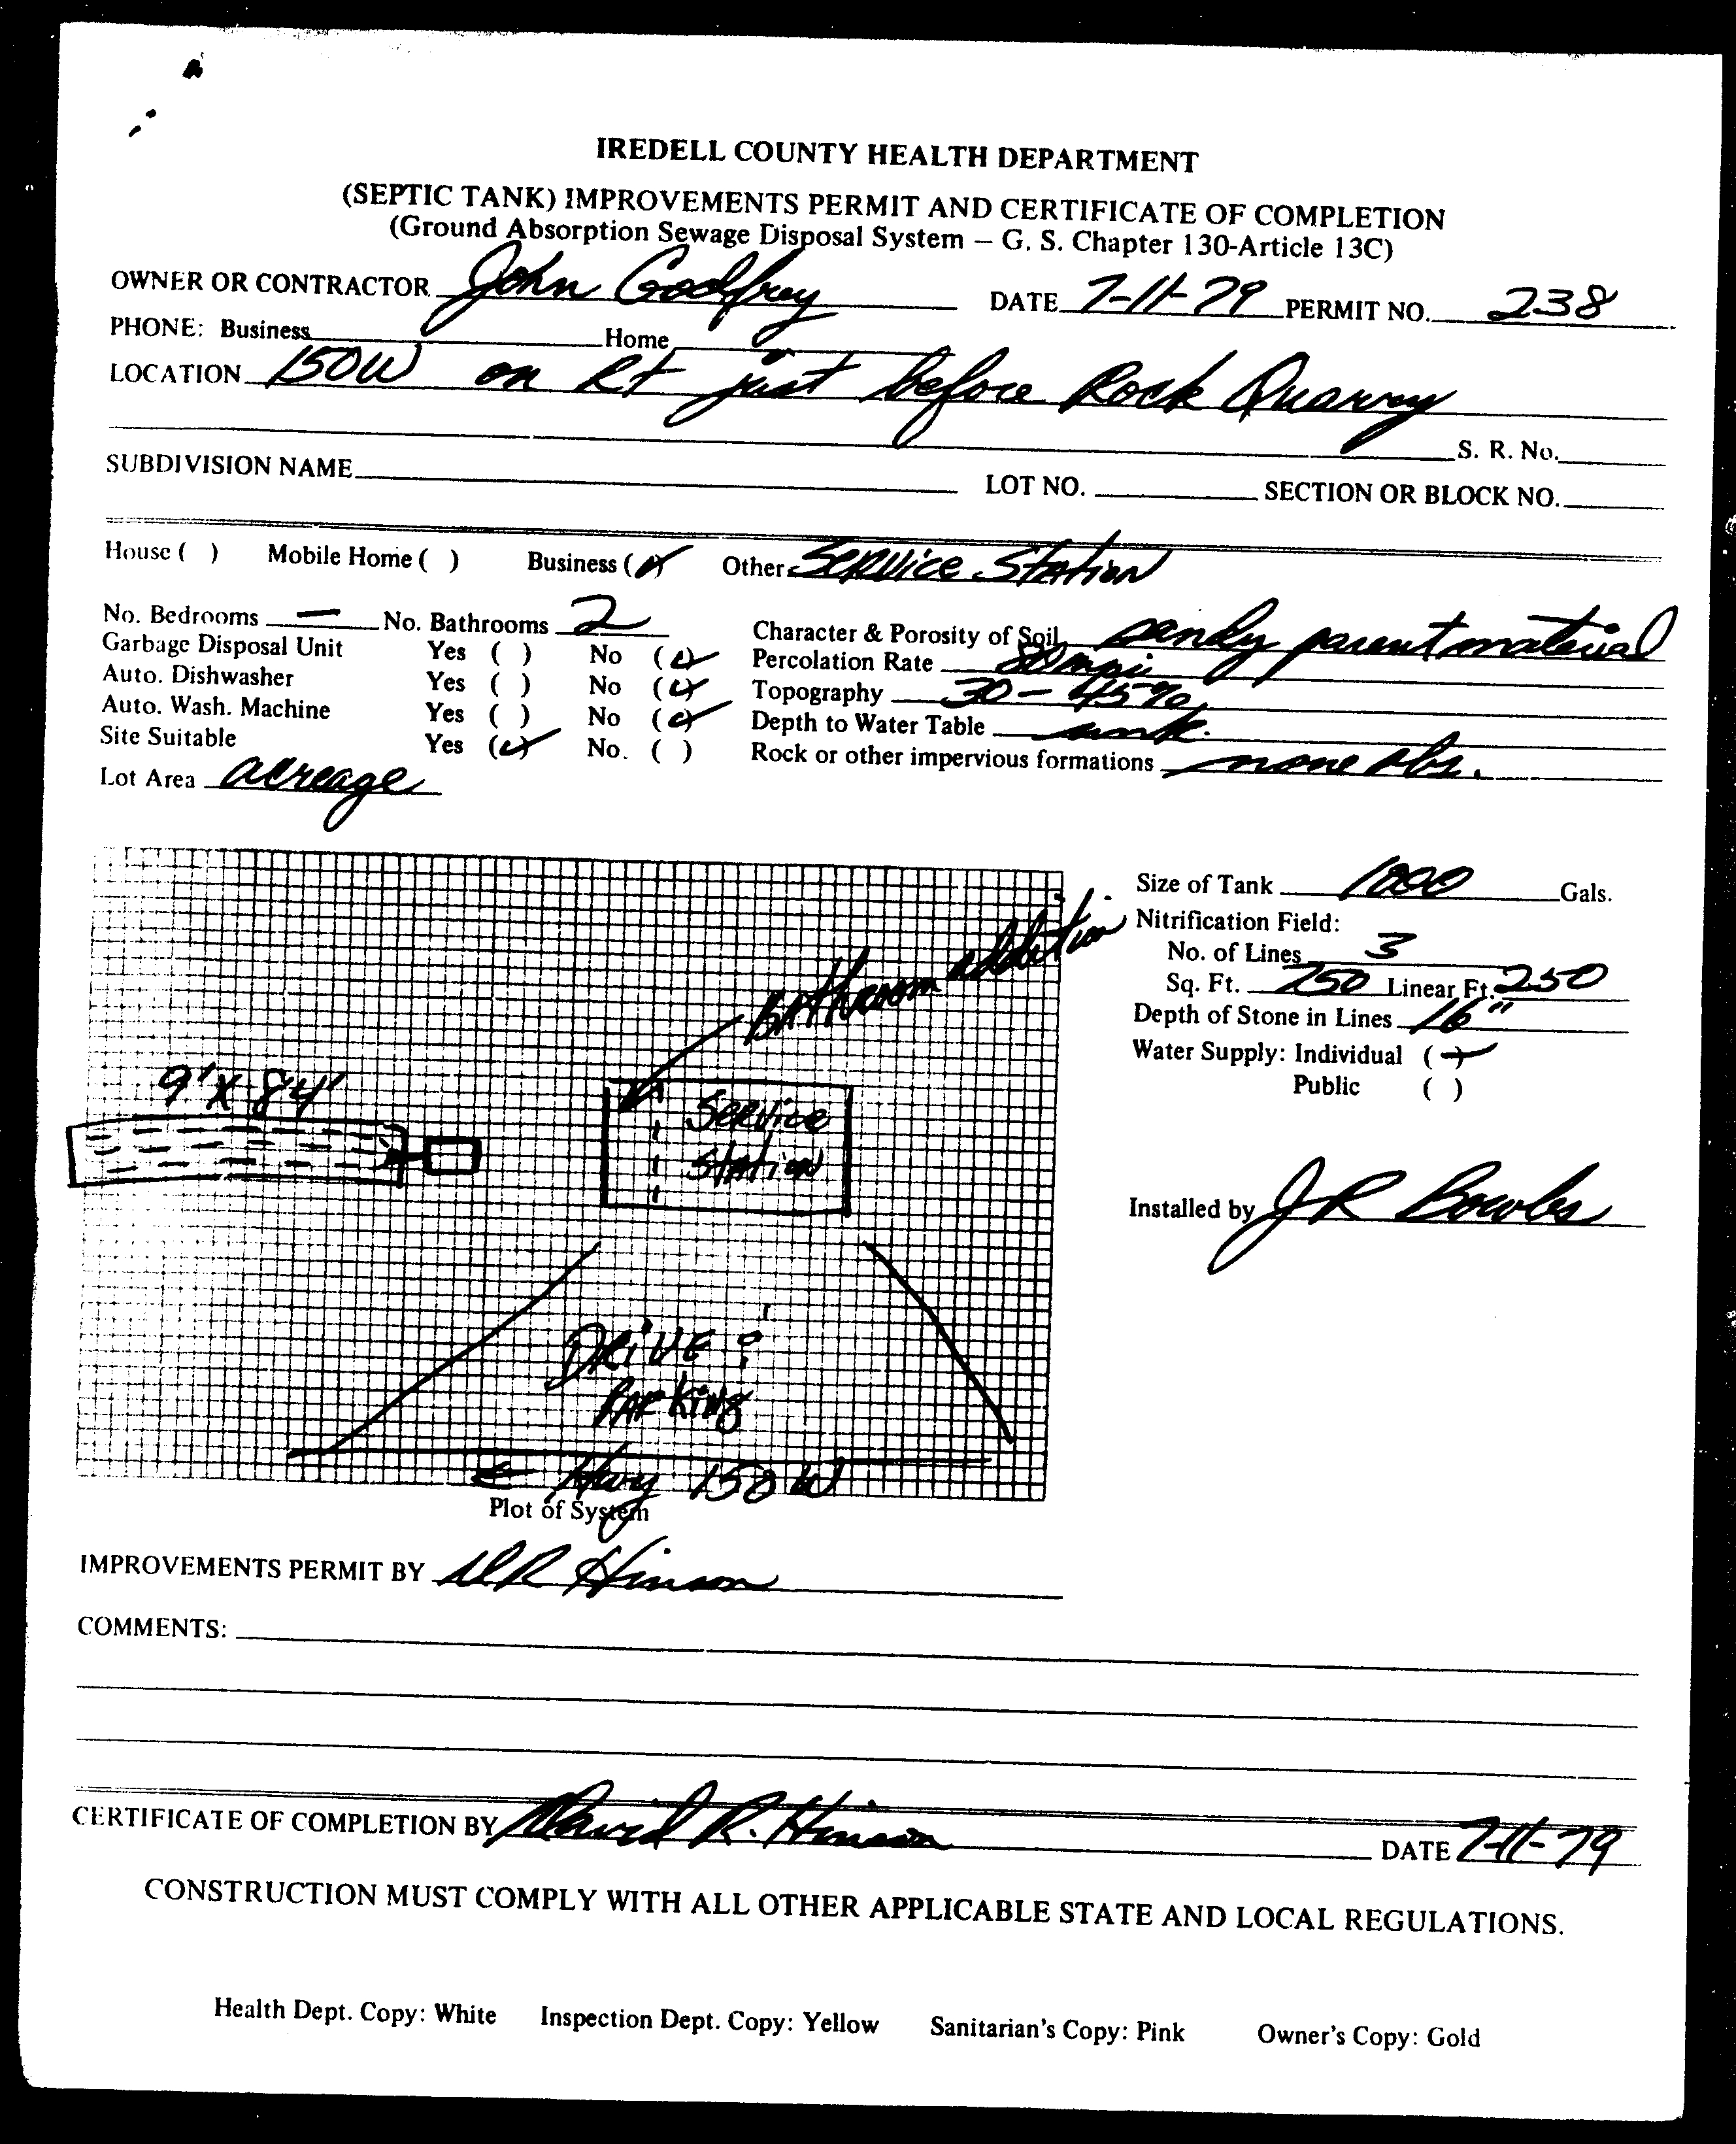 IREDELL COUNTY HEALTH DEPARTMENT
(SEPTIC TANK) IMPROVEMENTS PERMIT AND CERTIFICATE OF COMPLETION
(Ground Absorption Sewage Disposal System – G. S. Chapter 130-Article 13C)
OWNER OR CONTRACTOR John Godfrey DATE 7-11-79 PERMIT NO. 238
PHONE: Business Home
LOCATION 150W on Rt just before Rock Quarry
S. R. No.
SUBDIVISION NAME LOT NO. SECTION OR BLOCK NO.
House ( ) Mobile Home ( ) Business (✓) Other Service Station
No. Bedrooms — No. Bathrooms 2
Garbage Disposal Unit Yes ( ) No (✓)
Auto. Dishwasher Yes ( ) No (✓)
Auto. Wash. Machine Yes ( ) No (✓)
Site Suitable Yes (✓) No. ( )
Lot Area acreage
Character & Porosity of Soil sandy parent material
Percolation Rate 80 mpi
Topography 30 – 45%
Depth to Water Table unk.
Rock or other impervious formations none obs.
Bathroom addition
9' X 84'
Service
Station
Drive &
Parking
← Hwy 150 W
Plot of System
Size of Tank 1000 Gals.
Nitrification Field:
No. of Lines 3
Sq. Ft. 750 Linear Ft. 250
Depth of Stone in Lines 16"
Water Supply: Individual (✓)
Public ( )
Installed by JR Bowles
IMPROVEMENTS PERMIT BY DR Hinson
COMMENTS:
CERTIFICATE OF COMPLETION BY David R. Hinson DATE 7-11-79
CONSTRUCTION MUST COMPLY WITH ALL OTHER APPLICABLE STATE AND LOCAL REGULATIONS.
Health Dept. Copy: White Inspection Dept. Copy: Yellow Sanitarian's Copy: Pink Owner's Copy: Gold